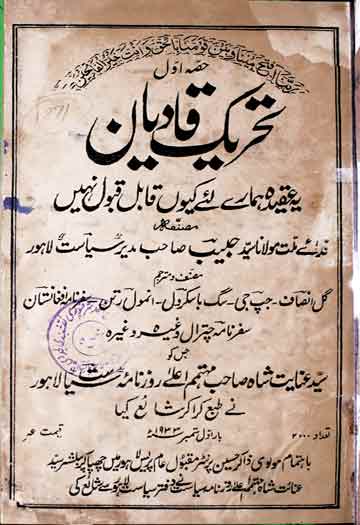 ربنا افتح بیننا وبین قومنا بالحق وانت خیر الفاتحین
حصہ اول
تحریک قادیان
یہ عقیدہ ہمارے لئے کیوں قابل قبول نہیں
مصنفہ
فدائے ملت مولانا سید حبیب صاحب مدیر سیاست لاہور
مصنف و مترجم
گل انصاف۔ جپ جی۔ سگ باسکرول۔ انمول رتن۔ سفرنامہ افغانستان
سفرنامہ چترال وغیرہ وغیرہ
جس کو
سید عنایت شاہ صاحب مہتمم اعلےٰ روزنامہ سیاست لاہور
نے طبع کرا کر شائع کیا
تعداد ۲۰۰۰ بار اول ستمبر ۱۹۳۳ء قیمت عہ
باہتمام مولوی ذاکر حسین پرنٹر مقبول عام پریس لاہور میں چھپا کر پبلشر سید
عنایت شاہ مہتمم اعلےٰ روزنامہ سیاست نے دفتر سیاست لاہور سے شائع کی